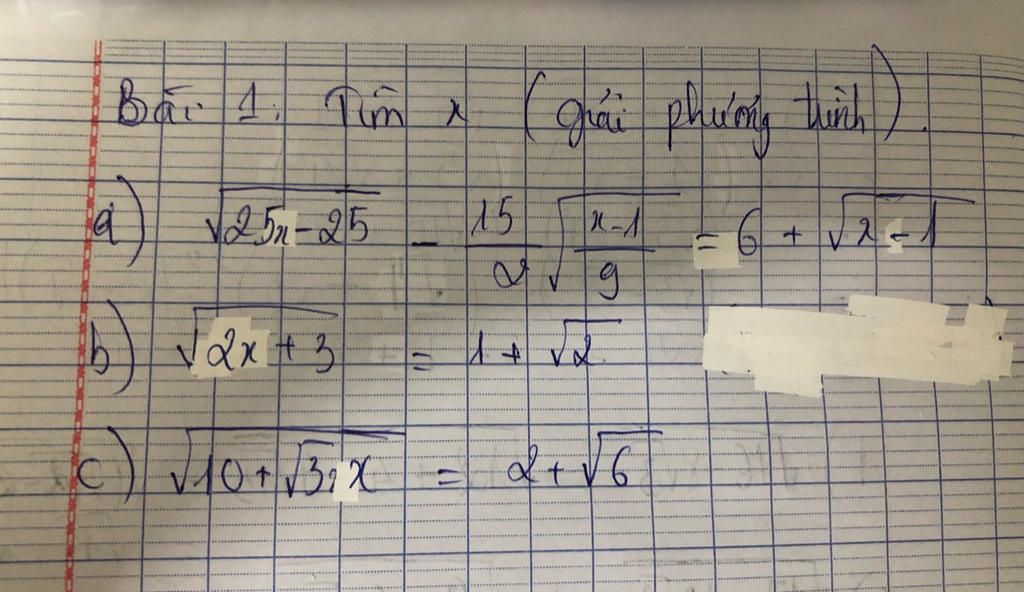 Bài 1: Tìm x (giải phương trình).
a) √(25x-25) - 15/2 √((x-1)/9) = 6 + √(x-1)
b) √(2x+3) = 1 + √2
c) √(10+√3.x) = 2+√6